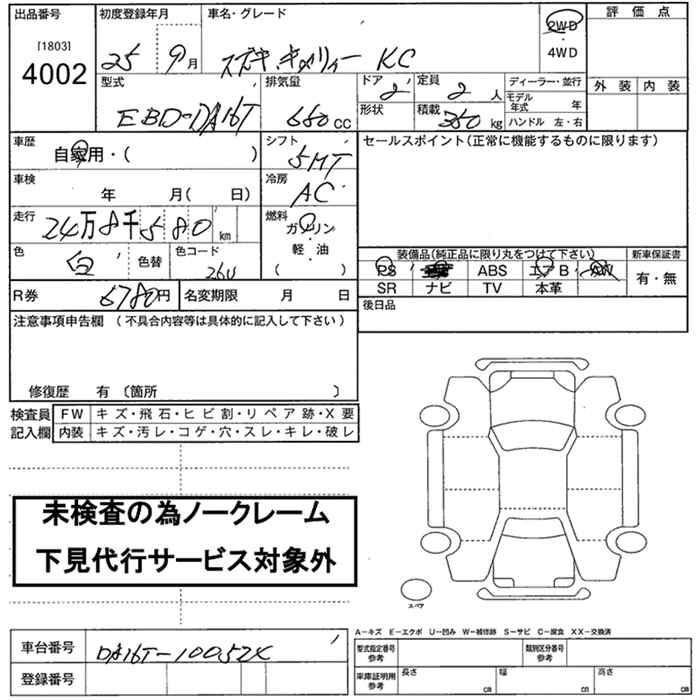 出品番号 初度登録年月 車名・グレード 評価点
[1803]
4002
25年9月 スズキ キャリィー KC
2WD
・
4WD
外装 内装
型式 排気量 ドア 定員 ディーラー・並行
EBD-DA16T 660cc 2 2人 モデル年式 年
形状 積載 350kg ハンドル 左・右
車歴 シフト セールスポイント(正常に機能するものに限ります)
自家用・( ) 5MT
車検 冷房
年 月( 日) AC
走行 燃料
24万8千580km ガソリン
色 色替 色コード 軽・油
白 26U ( )
装備品(純正品に限り丸をつけて下さい) 新車保証書
PS ABS エアB AW 有・無
SR ナビ TV 本革
R券 6780円 名変期限 月 日 後日品
注意事項申告欄(不具合内容等は具体的に記入して下さい)
修復歴 有〔箇所 〕
検査員 FW キズ・飛石・ヒビ割・リペア跡・X要
記入欄 内装 キズ・汚レ・コゲ・穴・スレ・キレ・破レ
未検査の為ノークレーム
下見代行サービス対象外
スペア
A−キズ E−エクボ U−凹み W−補修跡 S−サビ C−腐食 XX−交換済
車台番号 DA16T-10052X
登録番号
型式指定番号 参考 類別区分番号 参考
車庫証明用 参考 長さ cm 幅 cm 高さ cm